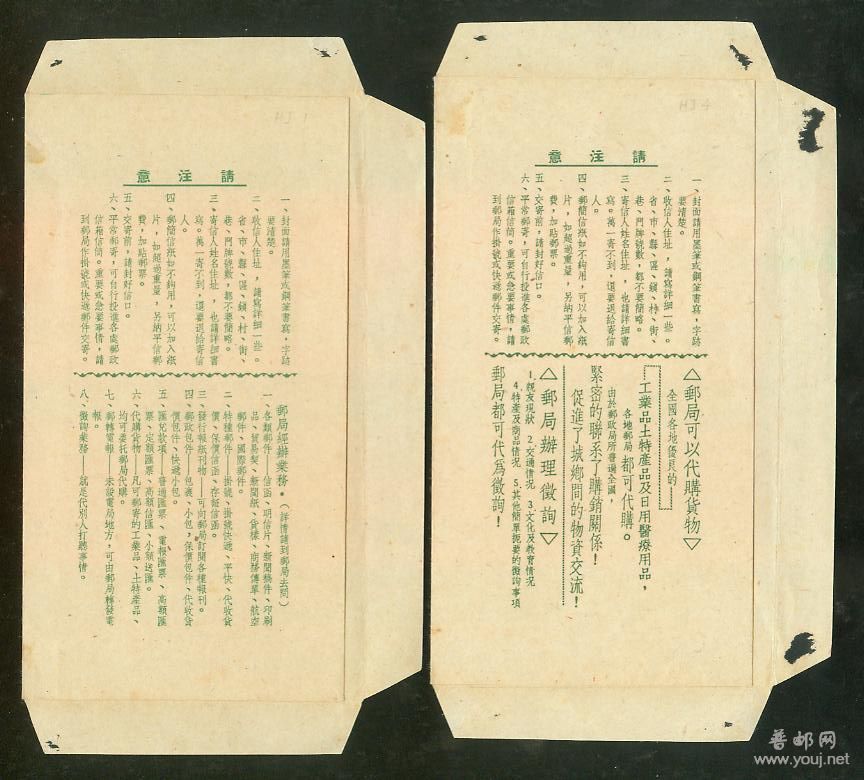 HJ 1
意注請
一、封面請用墨筆或鋼筆書寫，字跡
要清楚。
二、收信人住址，請寫詳細一些。
省、市、縣、區、鎮、村、街、
巷、門牌號數，都不要簡略。
三、寄信人姓名住址，也請詳細書
寫。萬一寄不到，還要退給寄信
人。
四、郵簡信紙如不夠用，可以加入紙
片，如超過重量，另納平信郵
費，加貼郵票。
五、交寄前，請封好信口。
六、平常郵寄，可自行投進各處郵政
信箱信筒。重要或急要事情，請
到郵局作掛號或快遞郵件交寄。
郵局經辦業務。（詳情請到郵局去問）
一、各類郵件——信函、明信片、新聞稿件、印刷
品、貿易契、新聞紙、貨樣、商務傳單、航空
郵件、國際郵件。
二、特種郵件——掛號、掛號快遞、平快、代收貨
價、保價信函、存証信函。
三、發行報紙刊物——可向郵局訂閱各種報刊。
四、郵政包件——包裹、小包，保價包件、代收貨
價包件、快遞小包。
五、匯兌款項——普通匯票、電報匯票、高額匯
票、定額匯票、高額信匯、小額送匯。
六、代購貨物——凡可郵寄的工業品、土特產品、
均可委托郵局代購。
七、郵轉電報——未設電局地方，可由郵局轉發電
報。
八、徵詢業務——就是代別人打聽事情。
HJ 4
意注請
一、封面請用墨筆或鋼筆書寫，字跡
要清楚。
二、收信人住址，請寫詳細一些。
省、市、縣、區、鎮、村、街、
巷、門牌號數，都不要簡略。
三、寄信人姓名住址，也請詳細書
寫。萬一寄不到，還要退給寄信
人。
四、郵簡信紙如不夠用，可以加入紙
片，如超過重量，另納平信郵
費，加貼郵票。
五、交寄前，請封好信口。
六、平常郵寄，可自行投進各處郵政
信箱信筒。重要或急要事情，請
到郵局作掛號或快遞郵件交寄。
△郵局可以代購貨物▽
全國各地優良的——
工業品土特產品及日用醫療用品，
各地郵局都可代購。
由於郵政局所普遍全國，
緊密的聯系了購銷關係！
促進了城鄉間的物資交流！
△郵局辦理徵詢▽
1.親友現狀 2.交通情況 3.文化及教育情況
4.特產及商品情況 5.其他簡單扼要的徵詢事項
郵局都可代為徵詢！
普邮网
www.youj.net